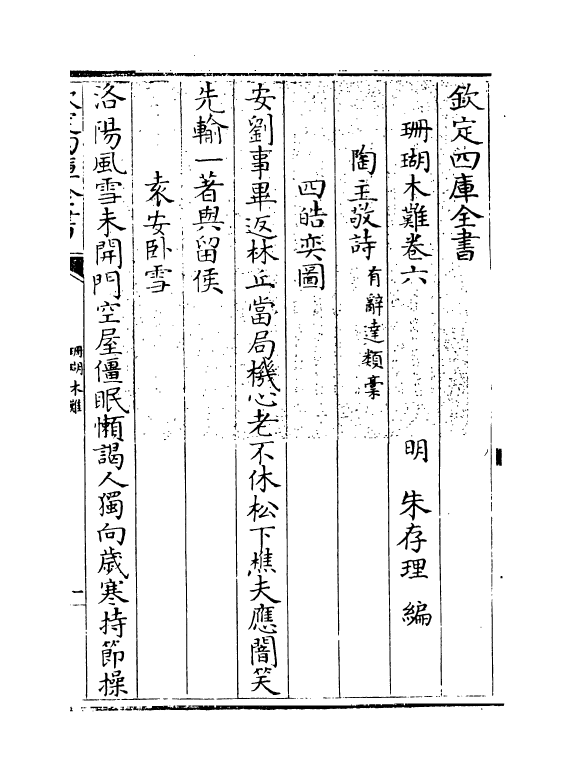 欽定四庫全書
珊瑚木難卷六
明 朱存理 編
陶主敬詩 有辭達類稾
四皓奕圖
安劉事畢返林丘當局機心老不休松下樵夫應闇笑
先輸一著與留侯
袁安卧雪
洛陽風雪未開門空屋僵眠懶謁人獨向歲寒持節操
欽定四庫全書
珊瑚木難
一